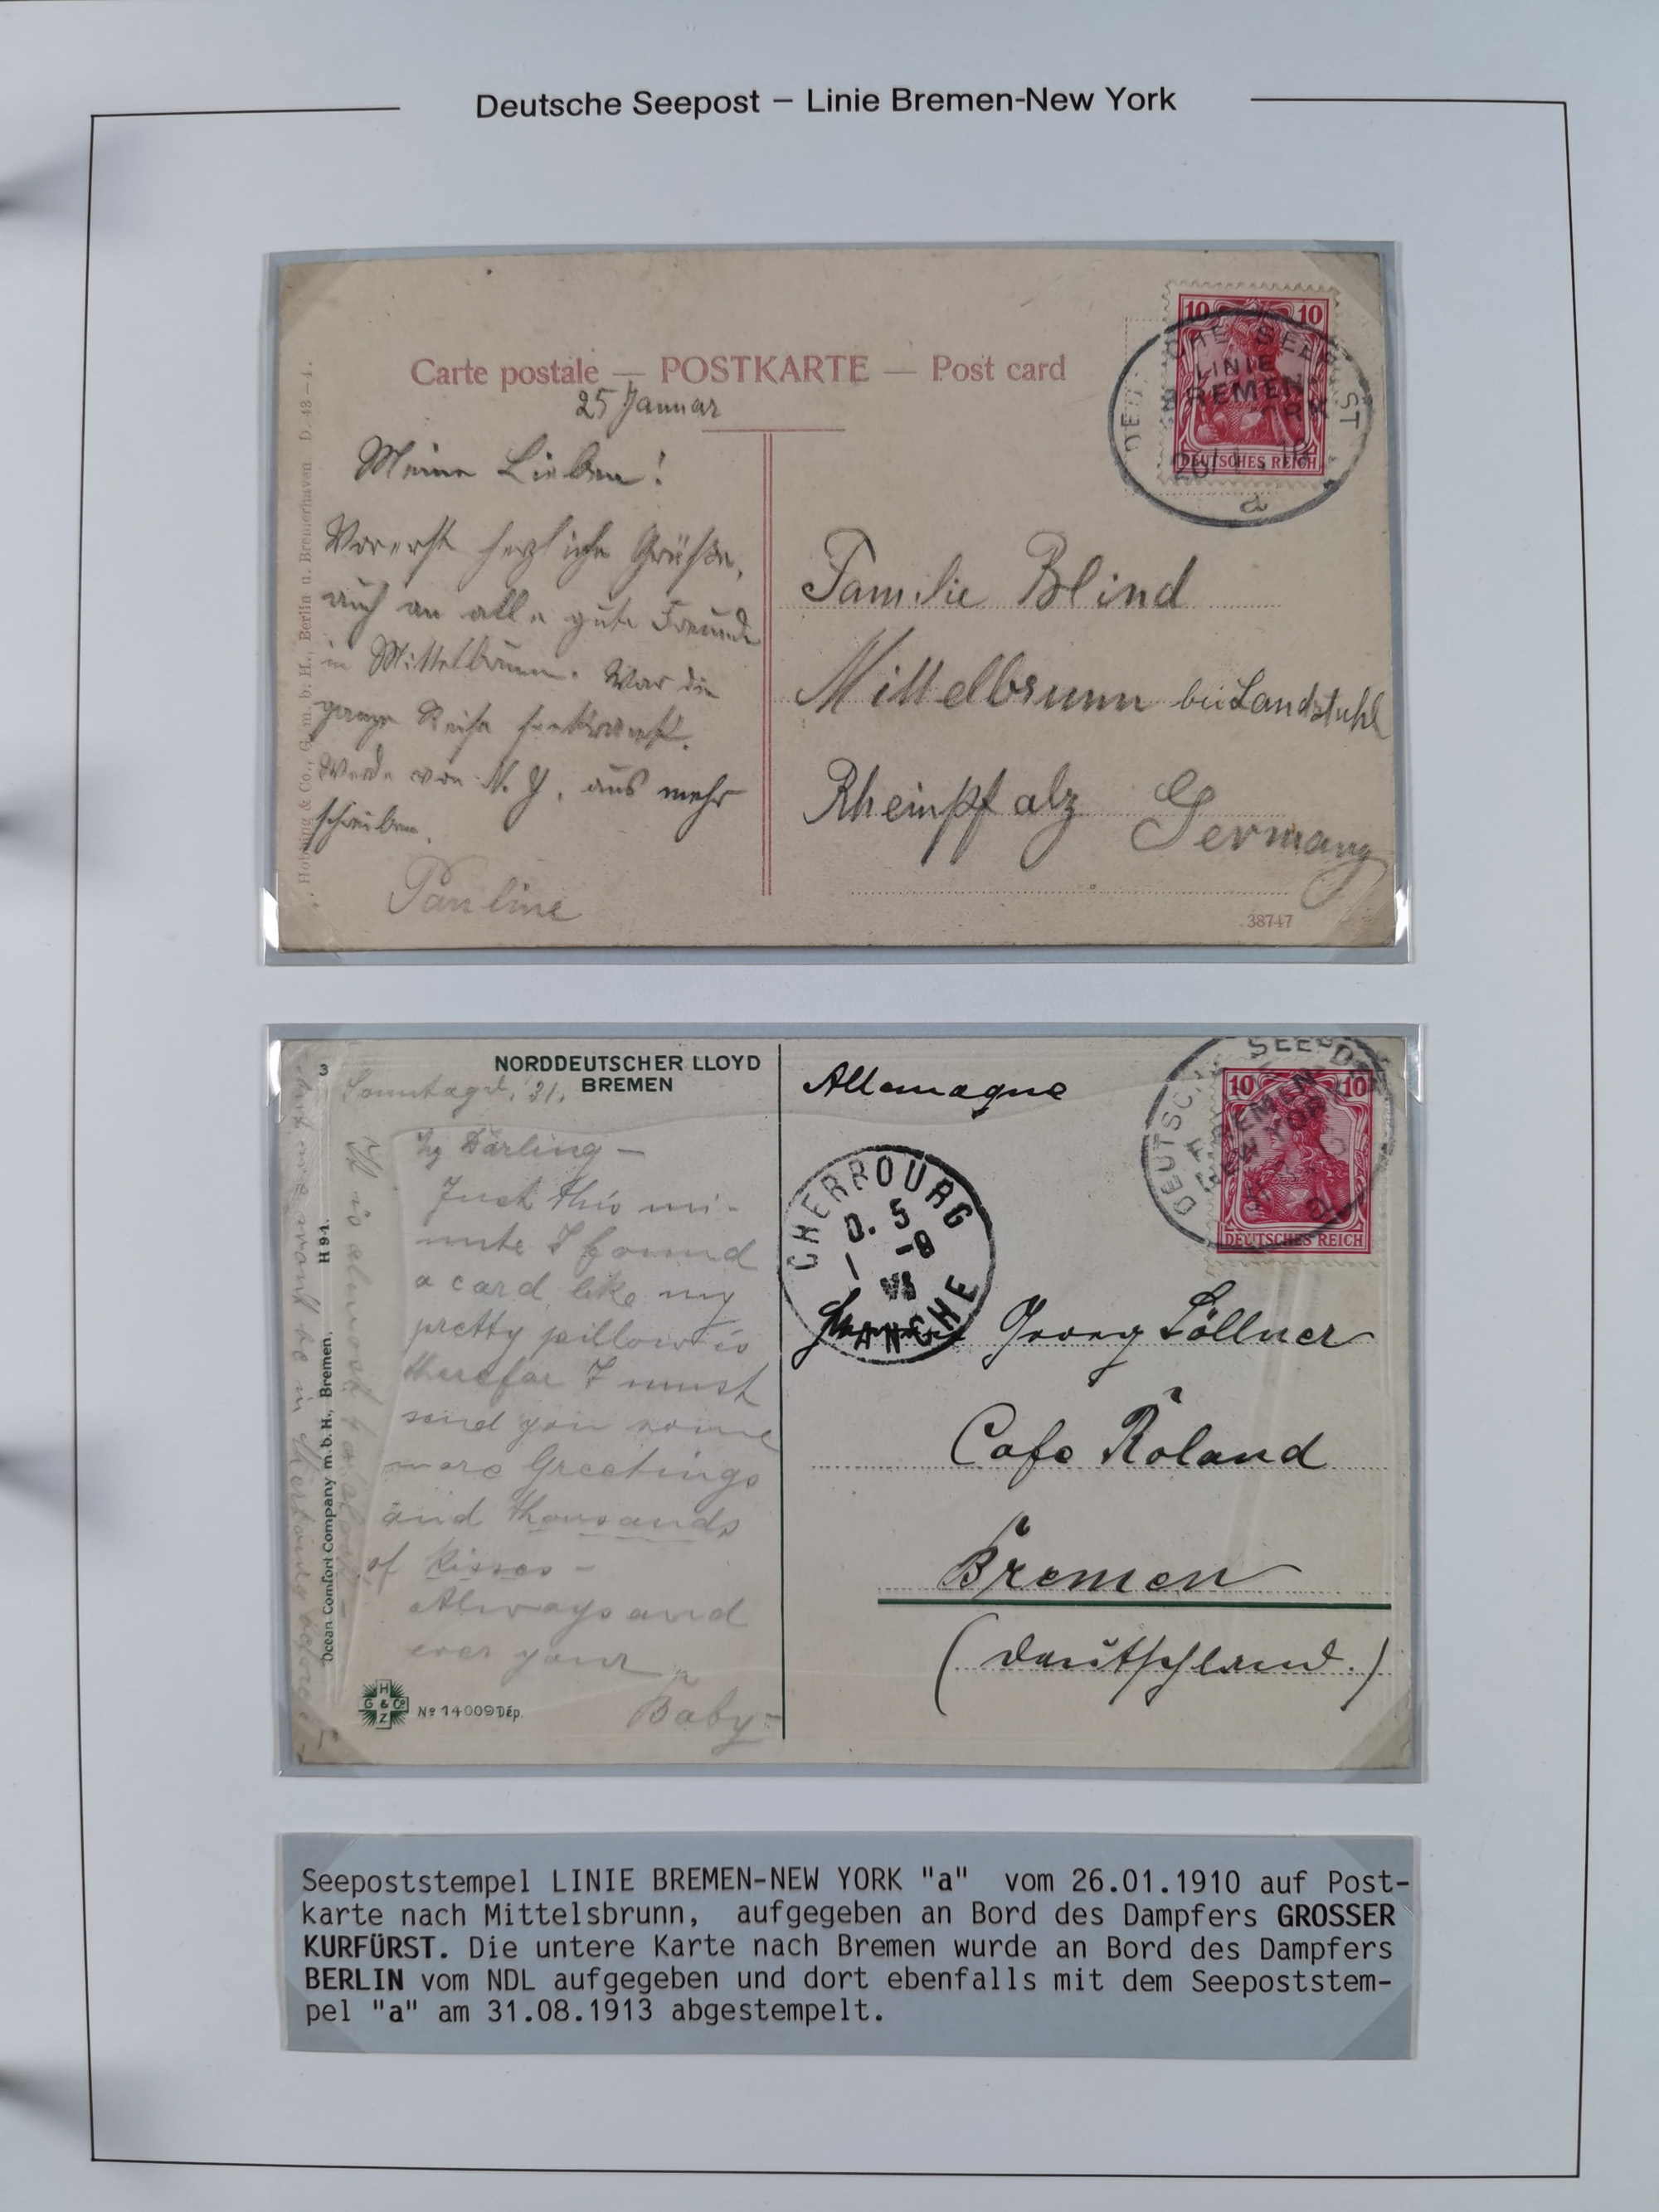 Deutsche Seepost – Linie Bremen-New York
Carte postale — POSTKARTE — Post card
25 Januar
Meine Lieben!
Vorerst herzliche Grüße,
auch an alle gute Freunde
in Mittelbrunn. War die
ganze Reise seekrank.
Werde von N. Y. aus mehr
schreiben.
Pauline
Hohning & Co., G. m. b. H., Berlin u. Bremerhaven D. 43-4.
LINIE
BREMEN
a
10 10
DEUTSCHES REICH
Familie Blind
Mittelbrunn bei Landstuhl
Rheinpfalz Germany
38747
NORDDEUTSCHER LLOYD
BREMEN
3
Sonntag d. 31.
My Darling —
Just this mi-
nute I found
a card like my
pretty pillow is
therefor I must
send you some
more Greetings
and thousands
of Kisses —
Always and
ever your
Baby —
It is almost
Ocean Comfort Company m. b. H., Bremen. H 94.
H
G & Co
Z
No 14009 Dép.
Allemagne
SEEPO
10 10
DEUTSCHES REICH
CHERBOURG
MANCHE
Georg Zöllner
Cafe Roland
Bremen
(Deutschland.)
Seepoststempel LINIE BREMEN-NEW YORK "a" vom 26.01.1910 auf Post-
karte nach Mittelsbrunn, aufgegeben an Bord des Dampfers GROSSER
KURFÜRST. Die untere Karte nach Bremen wurde an Bord des Dampfers
BERLIN vom NDL aufgegeben und dort ebenfalls mit dem Seepoststem-
pel "a" am 31.08.1913 abgestempelt.